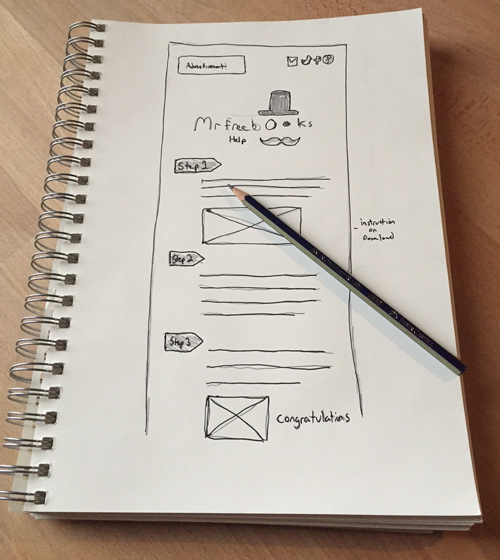 Advertisement
Mr freebooks
Help
Step 1
instruction
on
Download
Step 2
Step 3
Congratulations